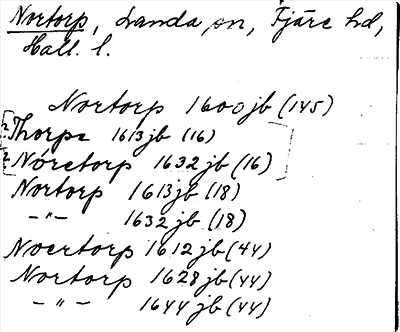 Nortorp, Landa sn, Fjäre hd,
Hall. l.
Nortorp 1600 jb (145)
? Thorpe 1613 jb (16)
? Nöretorp 1632 jb (16)
Nortorp 1613 jb (18)
— " — 1632 jb (18)
Noertorp 1612 jb (44)
Nortorp 1628 jb (44)
— " — 1644 jb (44)